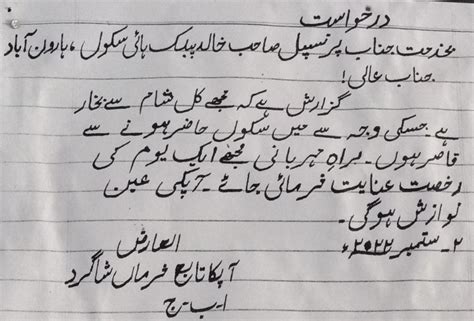 درخواست
بخدمت جناب پرنسپل صاحب خالد پبلک ہائی سکول ، ہارون آباد
جناب عالی!
گزارش ہے کہ مجھے کل شام سے بخار
ہے جسکی وجہ سے میں سکول حاضر ہونے سے
قاصر ہوں۔ براہِ مہربانی مجھے ایک یوم کی
رخصت عنایت فرمائی جائے۔ آپکی عین
نوازش ہوگی۔
۲۔ ستمبر ۲۰۲۲ء
العارض
آپکا تابع فرماں شاگرد
ا۔ب۔ج